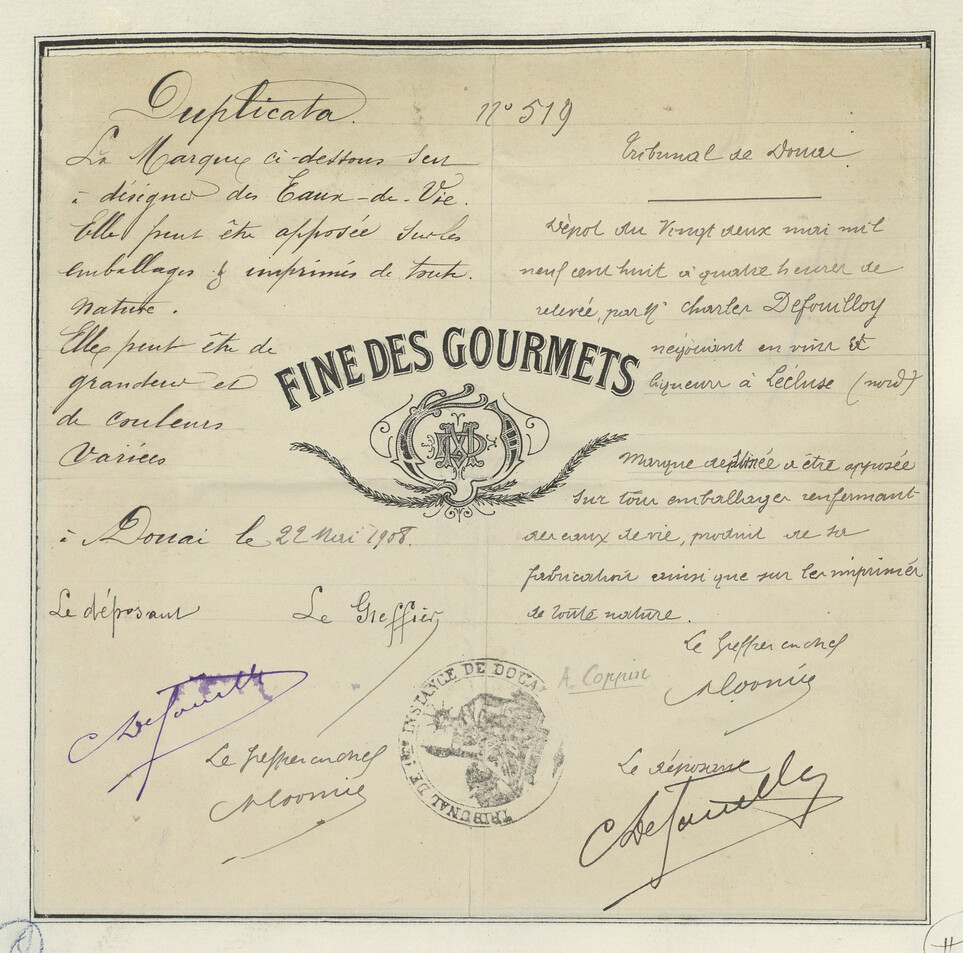 Duplicata.
La Marque ci-dessous sert
à désigner des Eaux-de-Vie.
Elle peut être apposée sur les
emballages & imprimés de toute
nature.
Elle peut être de
grandeur et
de couleurs
variées
à Douai le 22 Mai 1908.
Le déposant
Le Greffier
Le Greffier en chef
FINE DES GOURMETS
n° 519
Tribunal de Douai
Dépôt du Vingt deux mai mil
neuf cent huit à quatre heures de
relevée, par Mr Charles Defouilloy
négociant en vins et
liqueurs à Lécluse (nord)
Marque destinée à être apposée
sur tous emballages renfermant
des eaux de vie, produit de sa
fabrication ainsi que sur les imprimés
de toute nature.
Le Greffier en chef
A. Coppin
Le déposant
TRIBUNAL DE 1ère INSTANCE DE DOUAI